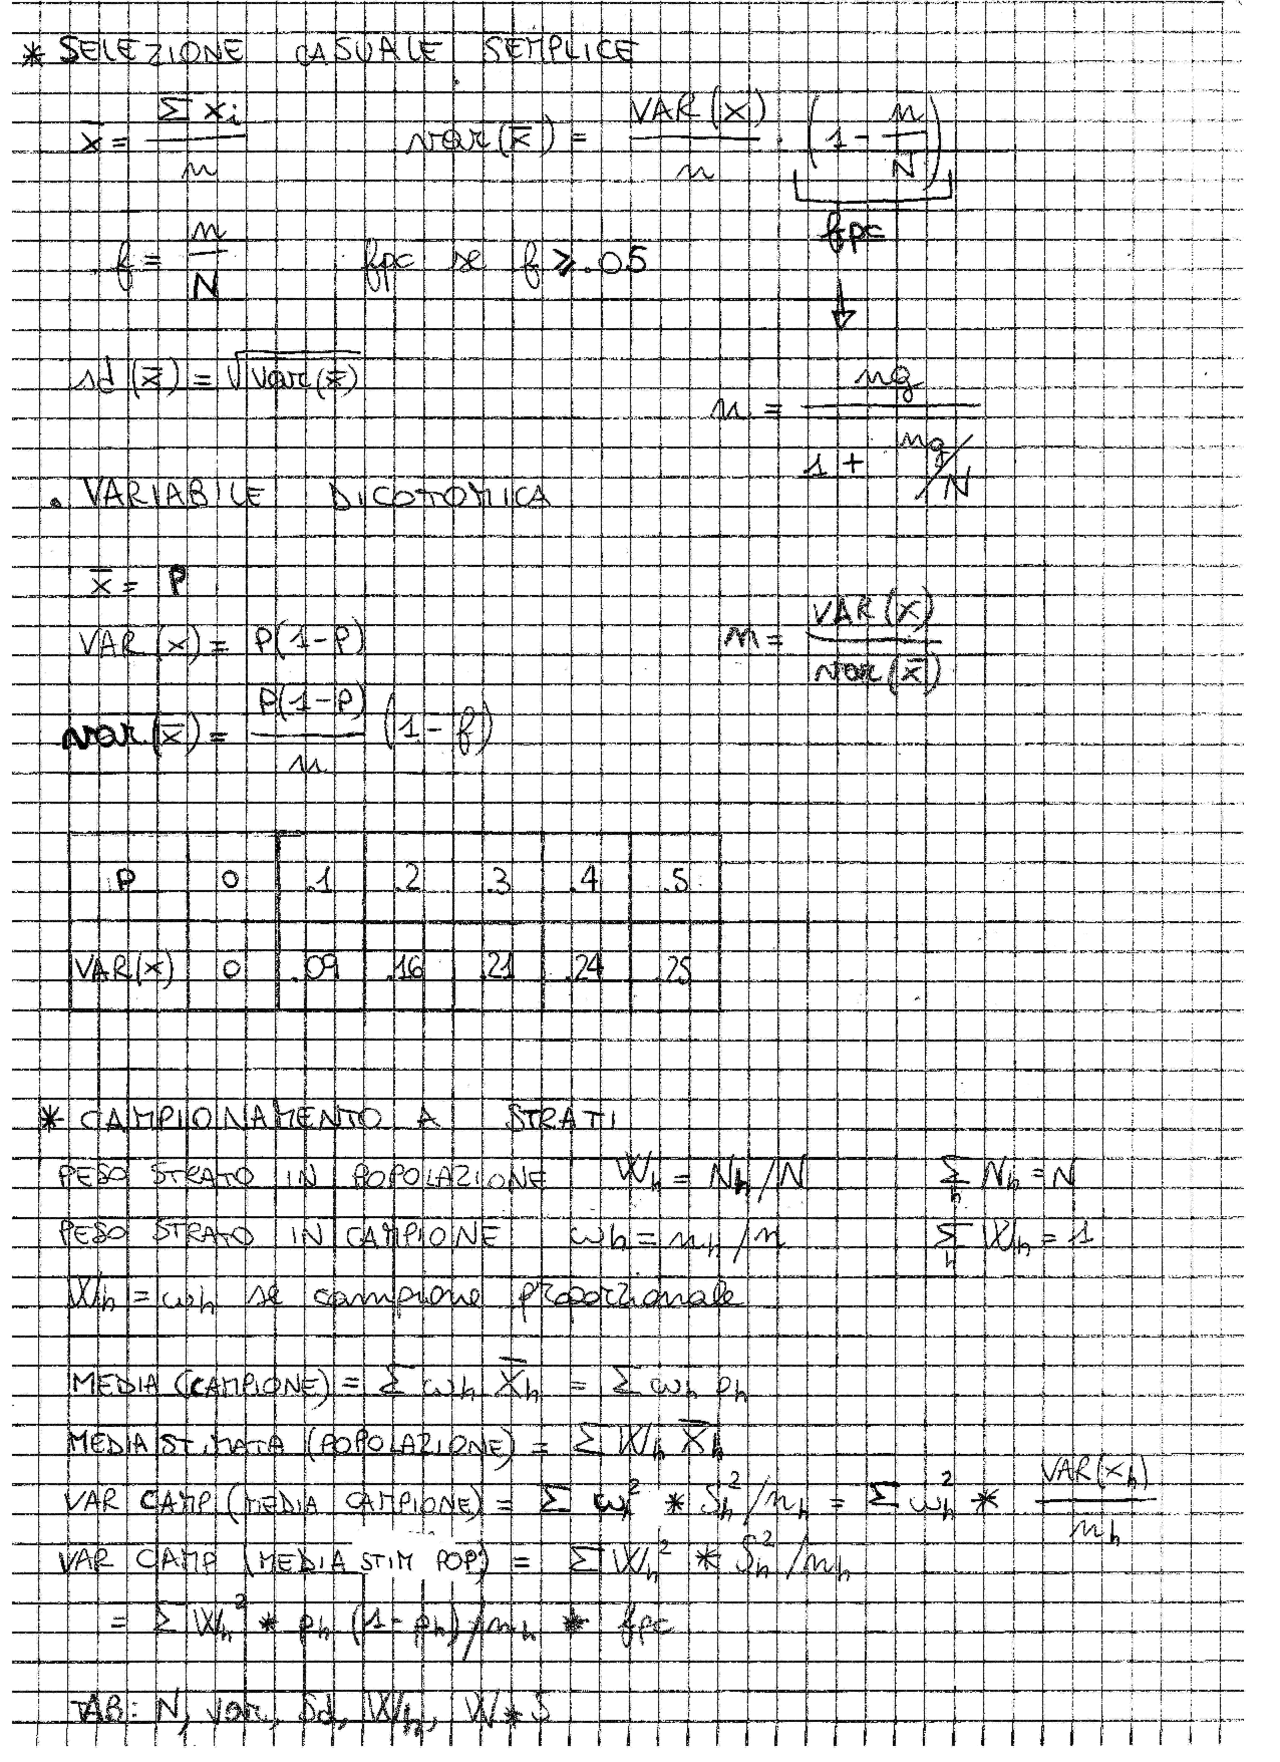 * SELEZIONE CASUALE SEMPLICE
x̄ = Σ xi / n    var(x̄) = VAR(x) / n · (1 - n/N)
fpc
f = n/N    fpc se f ≥ .05
↓
sd (x̄) = √var(x̄)
n = ng / (1 + ng/N)
• VARIABILE DICOTOMICA
x̄ = P
VAR(x) = P(1-P)    n = VAR(x) / var(x̄)
var(x̄) = P(1-P) / n (1-f)
P 0 .1 .2 .3 .4 .5
VAR(x) 0 .09 .16 .21 .24 .25
* CAMPIONAMENTO A STRATI
PESO STRATO IN POPOLAZIONE Wh = Nh/N    Σh Nh = N
PESO STRATO IN CAMPIONE wh = nh/n    Σh Wh = 1
Wh = wh se campione proporzionale
MEDIA (CAMPIONE) = Σ wh X̄h = Σ wh ph
MEDIA STIMATA (POPOLAZIONE) = Σ Wh X̄h
VAR CAMP (MEDIA CAMPIONE) = Σ wh² * Sh²/nh = Σ wh² * VAR(xh) / nh
VAR CAMP (MEDIA STIM POP) = Σ Wh² * Sh²/nh
= Σ Wh² * ph (1-ph)/nh * fpc
TAB: N, var, Sd, Wh, W*S